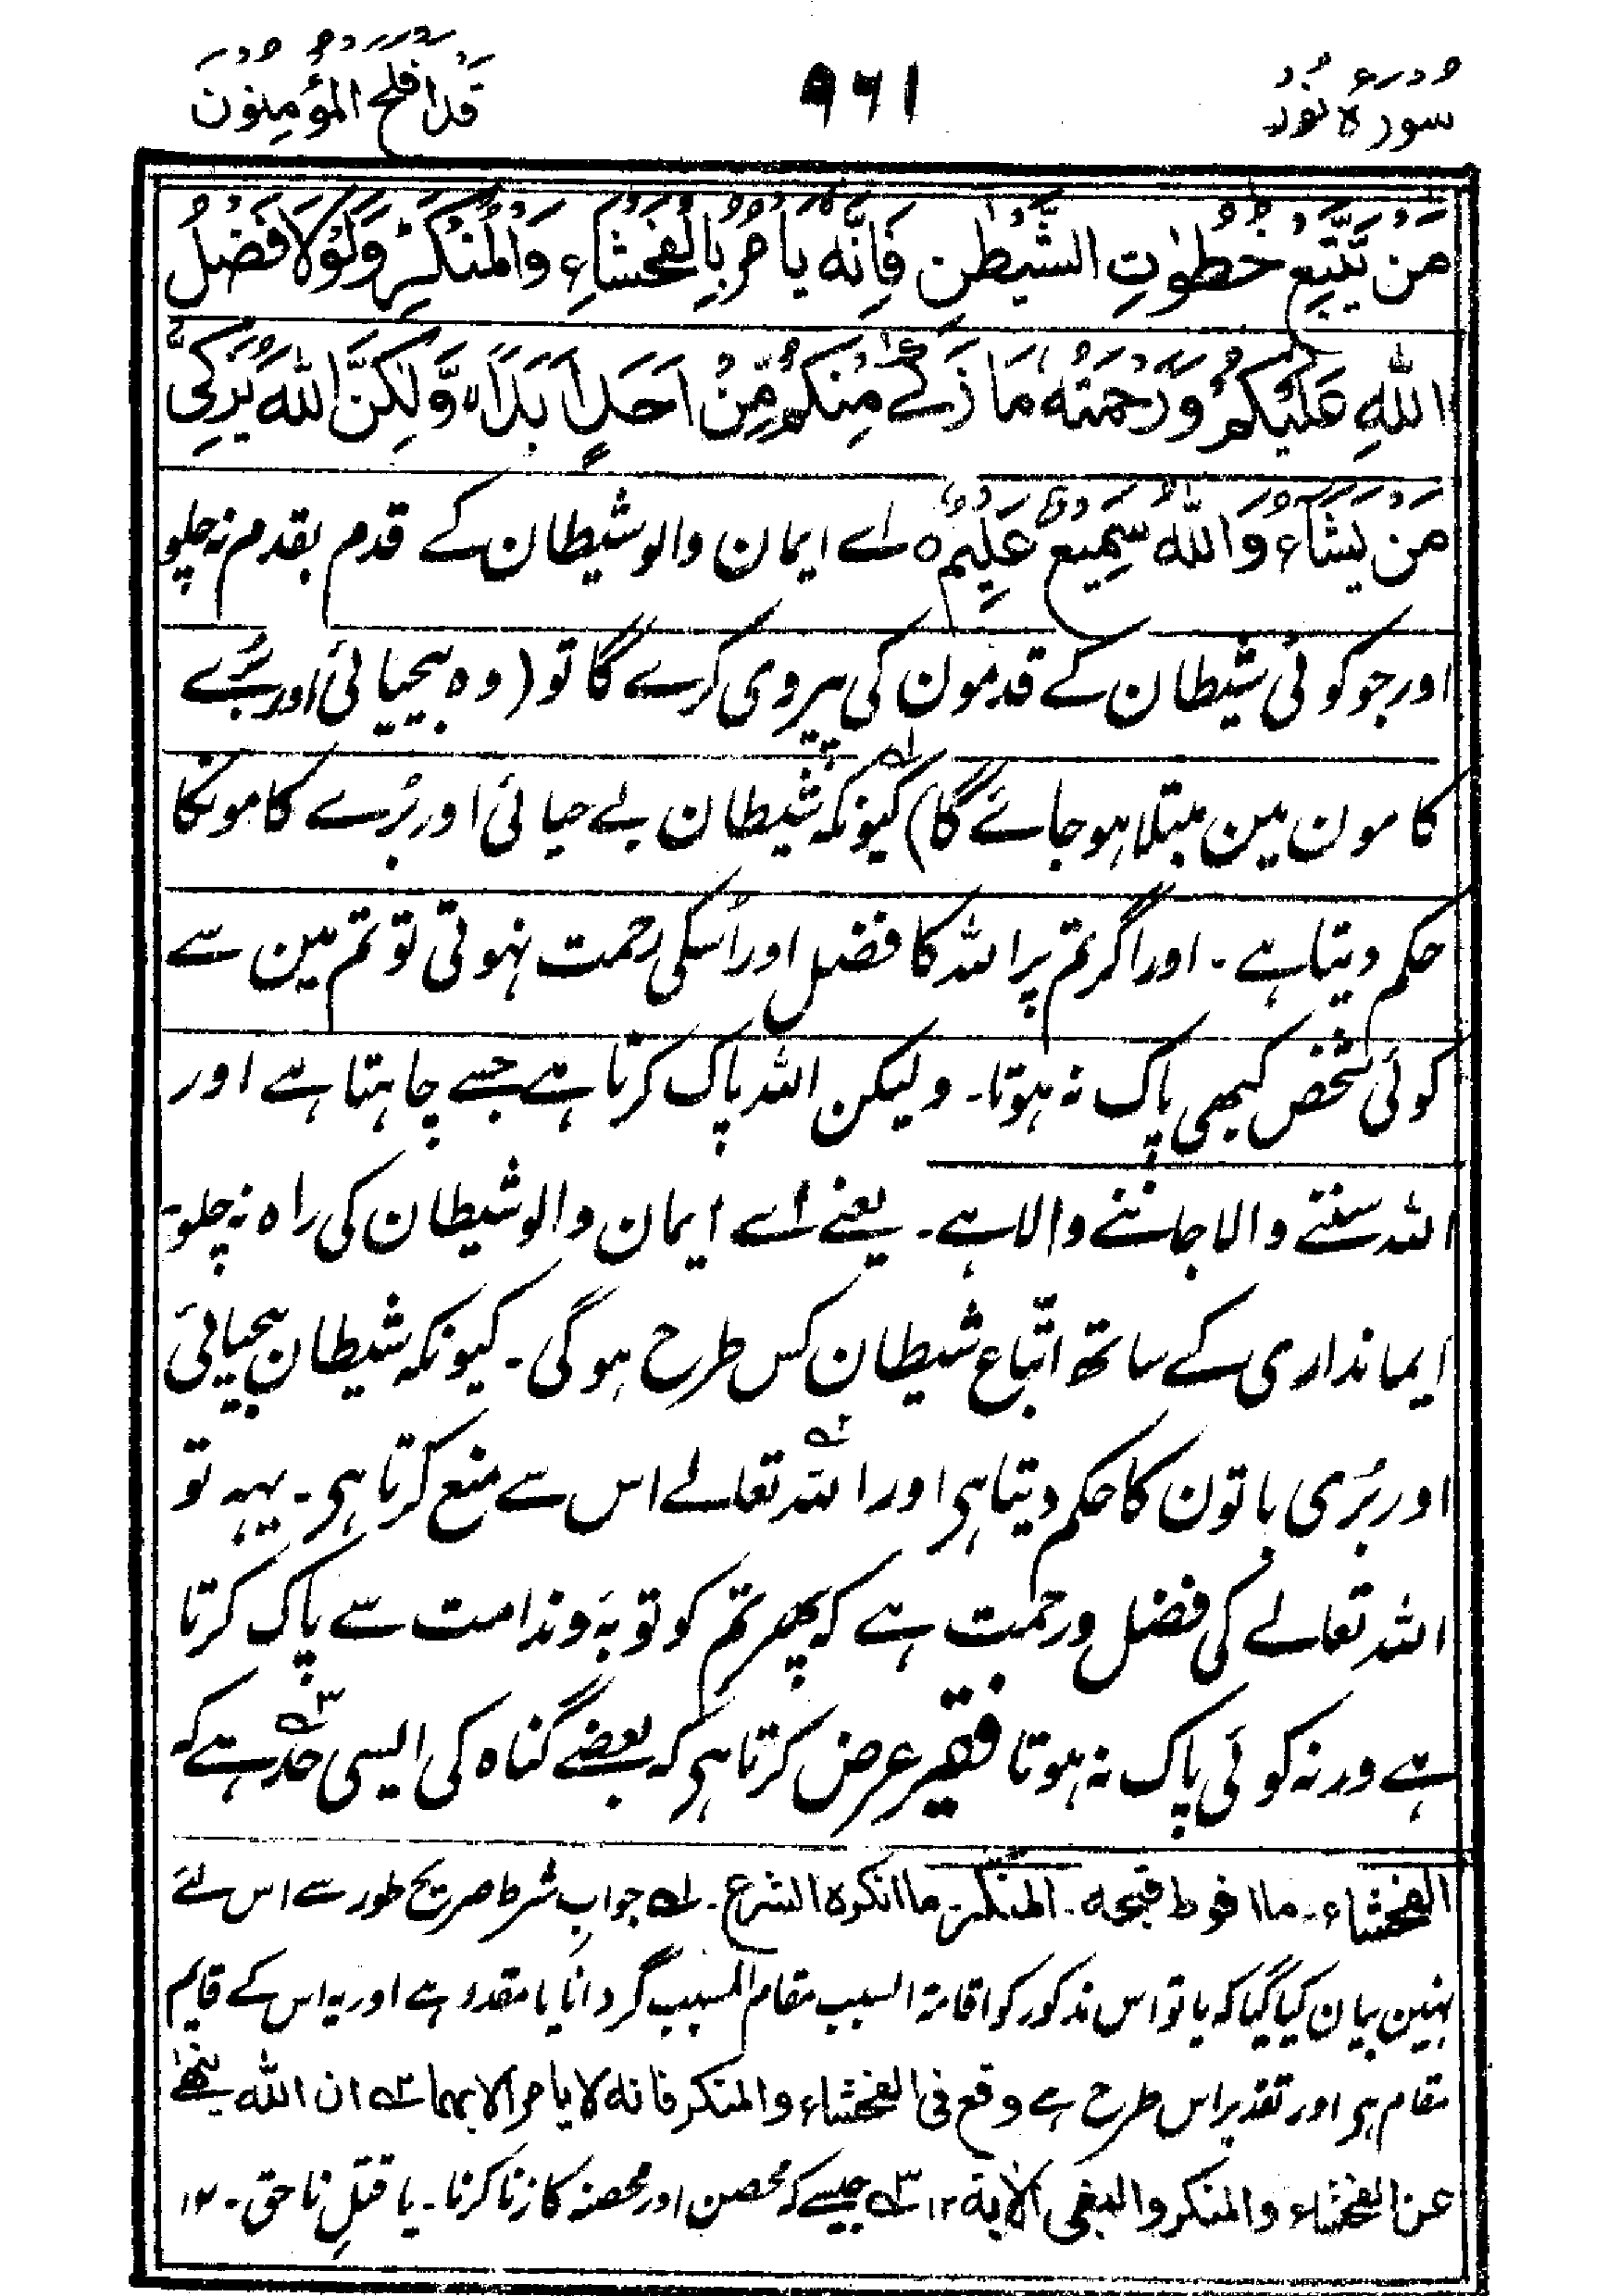 سورۂ نُور
۹۶۱
قَدْ اَفْلَحَ الْمُؤْمِنُوْنَ
مَنْ يَّتَّبِعْ خُطُوٰتِ الشَّيْطٰنِ فَاِنَّهٗ يَاْمُرُ بِالْفَحْشَآءِ وَالْمُنْكَرِ ؕ وَلَوْلَا فَضْلُ
اللّٰهِ عَلَيْكُمْ وَرَحْمَتُهٗ مَا زَكٰے مِنْكُمْ مِّنْ اَحَدٍ اَبَدًا ۙ وَّلٰكِنَّ اللّٰهَ يُزَكِّیْ
مَنْ يَّشَآءُ ؕ وَاللّٰهُ سَمِيْعٌ عَلِيْمٌ ہ اے ایمان والو شیطان کے قدم بقدم نہ چلو
اور جو کوئی شیطان کے قدمون کی پیروی کرے گا تو (وہ بیحیائی اور بُرے
کامون مین مبتلا ہو جائے گا) ۱؎ کیونکہ شیطان بے حیائی اور بُرے کامونکا
حکم دیتا ہے۔ اور اگر تم پر اللہ کا فضل اور اُسکی رحمت نہوتی تو تم مین سے
کوئی شخص کبھی پاک نہ ہوتا۔ ولیکن اللہ پاک کرتا ہے جسے چاہتا ہے اور
اللہ سننے والا جاننے والا ہے۔ یعنے اے ایمان والو شیطان کی راہ نہ چلو۔
ایمانداری کے ساتھ اتّباع شیطان کس طرح ہوگی۔ کیونکہ شیطان بیحیائی
اور بُری باتون کا حکم دیتا ہی اور اللہ ۲؎ تعالے اس سے منع کرتا ہی۔ یہہ تو
اللہ تعالے کی فضل و رحمت ہے کہ پھر تم کو توبہ و ندامت سے پاک کرتا
ہے ورنہ کوئی پاک نہ ہوتا فقیر عرض کرتا ہی کہ بعضے گناہ کی ایسی حد ۳؎ ہے کہ
الفحشاء۔ ما افرط قبحہ۔ المنکر ما انکرہ الشرع۔ ۱؎ جواب شرط صریح طور سے اس لئے
نہین بیان کیا گیا کہ یا تو اس مذکور کو اقامۃ السبب مقام المسبب گردانا یا مقدر ہے اور یہ اس کے قایم
مقام ہی اور تقدیر اس طرح ہے وقع فی الفحشاء والمنکر فانہ لا یامر الا بہما ۲؎ ان اللہ ینھیٰ
عن الفحشاء والمنکر والبغی الآیۃ ۱۲ ۳؎ جیسے کہ محصن اور محصنہ کا زنا کرنا۔ یا قتلِ ناحق۔ ۱۲